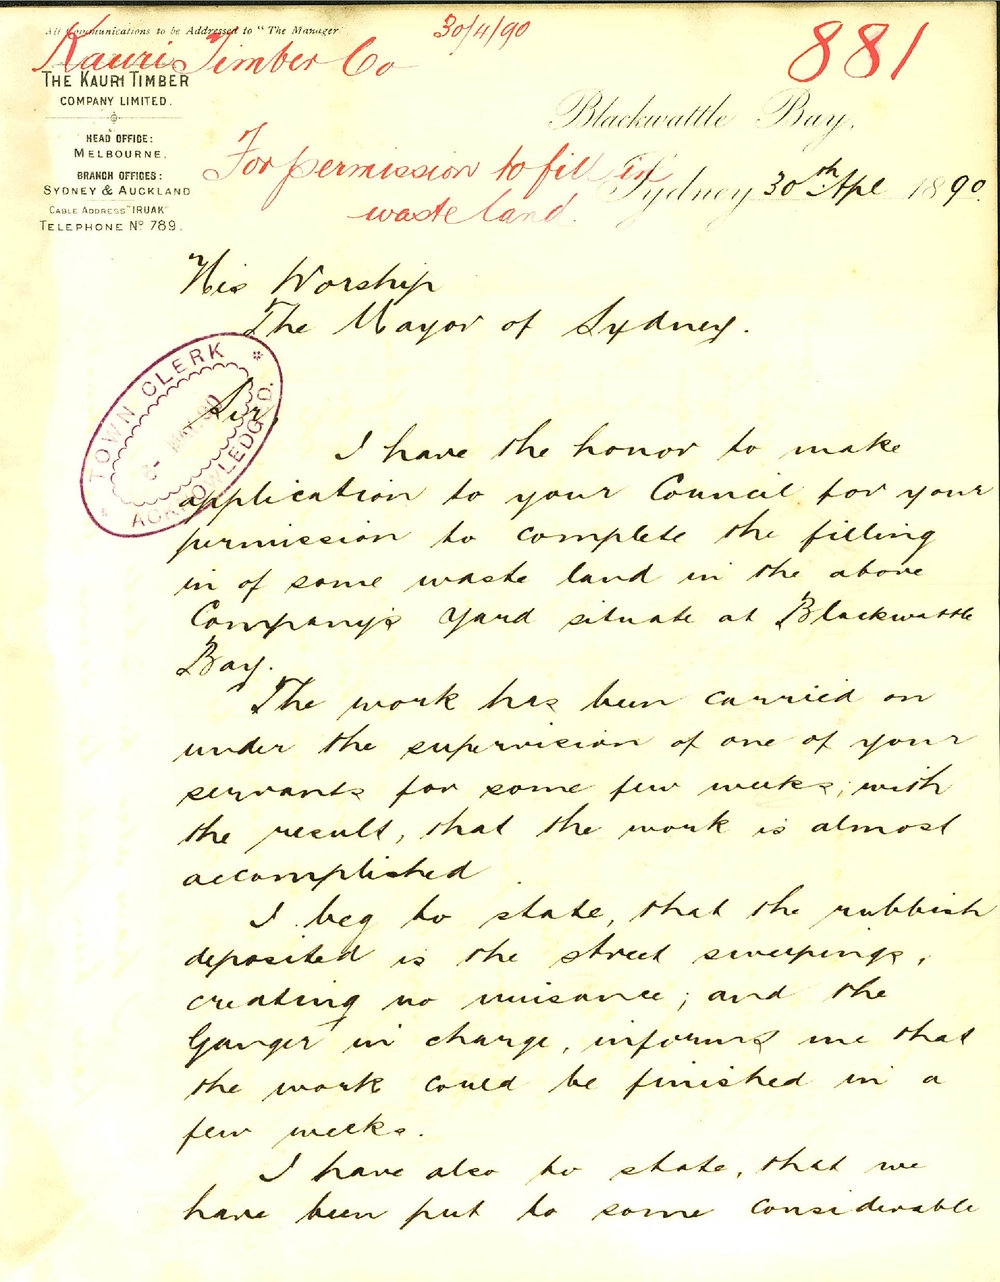 All Communications to be Addressed to "The Manager"
30/4/90
881
Kauri Timber Co
THE KAURI TIMBER
COMPANY LIMITED.
HEAD OFFICE:
MELBOURNE.
BRANCH OFFICES:
SYDNEY & AUCKLAND
CABLE ADDRESS "IRUAK"
TELEPHONE Nº 789.
For permission to fill in
waste land.
Blackwattle Bay,
Sydney 30th Apl 1890.
His Worship
The Mayor of Sydney.
TOWN CLERK
MAY 90
ACKNOWLEDGED.
Sir,
I have the honor to make
application to your Council for your
permission to complete the filling
in of some waste land in the above
Company's Yard situate at Blackwattle
Bay.
The work has been carried on
under the supervision of one of your
servants for some few weeks, with
the result, that the work is almost
accomplished
I beg to state, that the rubbish
deposited is the street sweepings,
creating no nuisance; and the
Ganger in charge, informs me that
the work could be finished in a
few weeks.
I have also to state, that we
have been put to some considerable